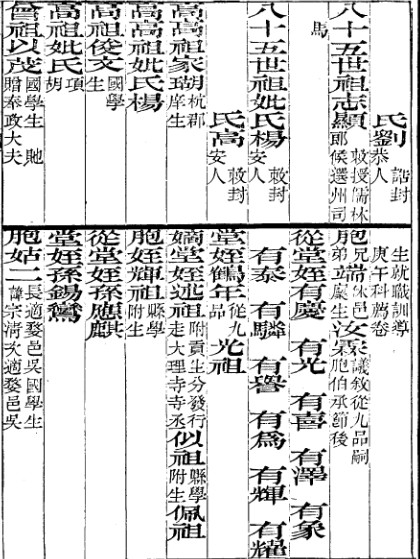 氏劉誥封恭人
八十五世祖志顯敕授儒林郎候選州司
馬
八十五世祖妣氏楊敕封安人
氏高敕封安人
高高祖家瑚杭郡庠生
高高祖妣氏楊
高祖俊文國學生
高祖妣氏項胡
曾祖以茂國學生貤贈奉政大夫
生就職訓導庚午科薦卷
胞兄弟休邑廩生汝霖議敘從九品嗣胞伯承節後
從堂姪有慶 有光 有喜 有澤 有象
有泰 有驎 有譽 有為 有輝 有耀
堂姪鶴年從九品光祖
嫡堂姪述祖附貢生分發行走大理寺寺丞似祖縣學附生佩祖
胞姪輝祖縣學附生
從堂姪孫應麒
堂姪孫錫鷟
胞姑二長適婺邑吳國學生諱宗清次適婺邑吳